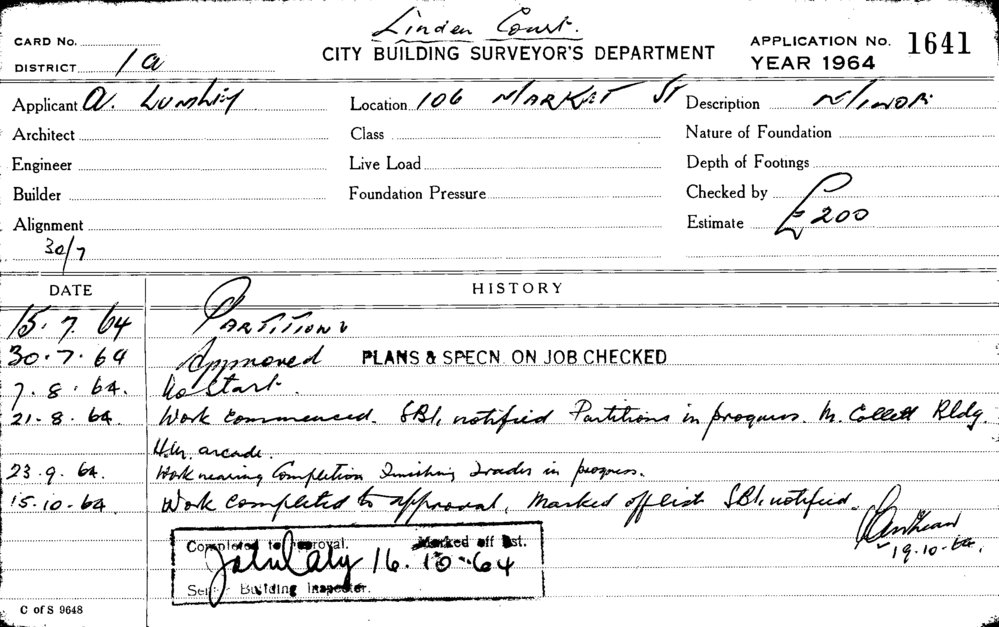 Linden Court.
CARD No. CITY BUILDING SURVEYOR'S DEPARTMENT APPLICATION No. 1641
DISTRICT 1a YEAR 1964
Applicant A. Location 106 MARKET ST Description MINOR
Architect Class Nature of Foundation
Engineer Live Load Depth of Footings
Builder Foundation Pressure Checked by
Alignment Estimate £200
30/7
DATE HISTORY
15.7.64 PARTITIONS
30.7.64 Approved PLANS & SPECN. ON JOB CHECKED
7.8.64. No start.
21.8.64. Work commenced. SBI, notified Partitions in progress. M. Collett Bldg.
arcade.
23.9.64. Work nearing Completion Finishing Trades in progress.
15.10.64. Work completed to approval, Marked off list SBI, notified.
19.10.64.
Completed to approval. Marked off list.
16.10.64
Building Inspector.
C of S 9648